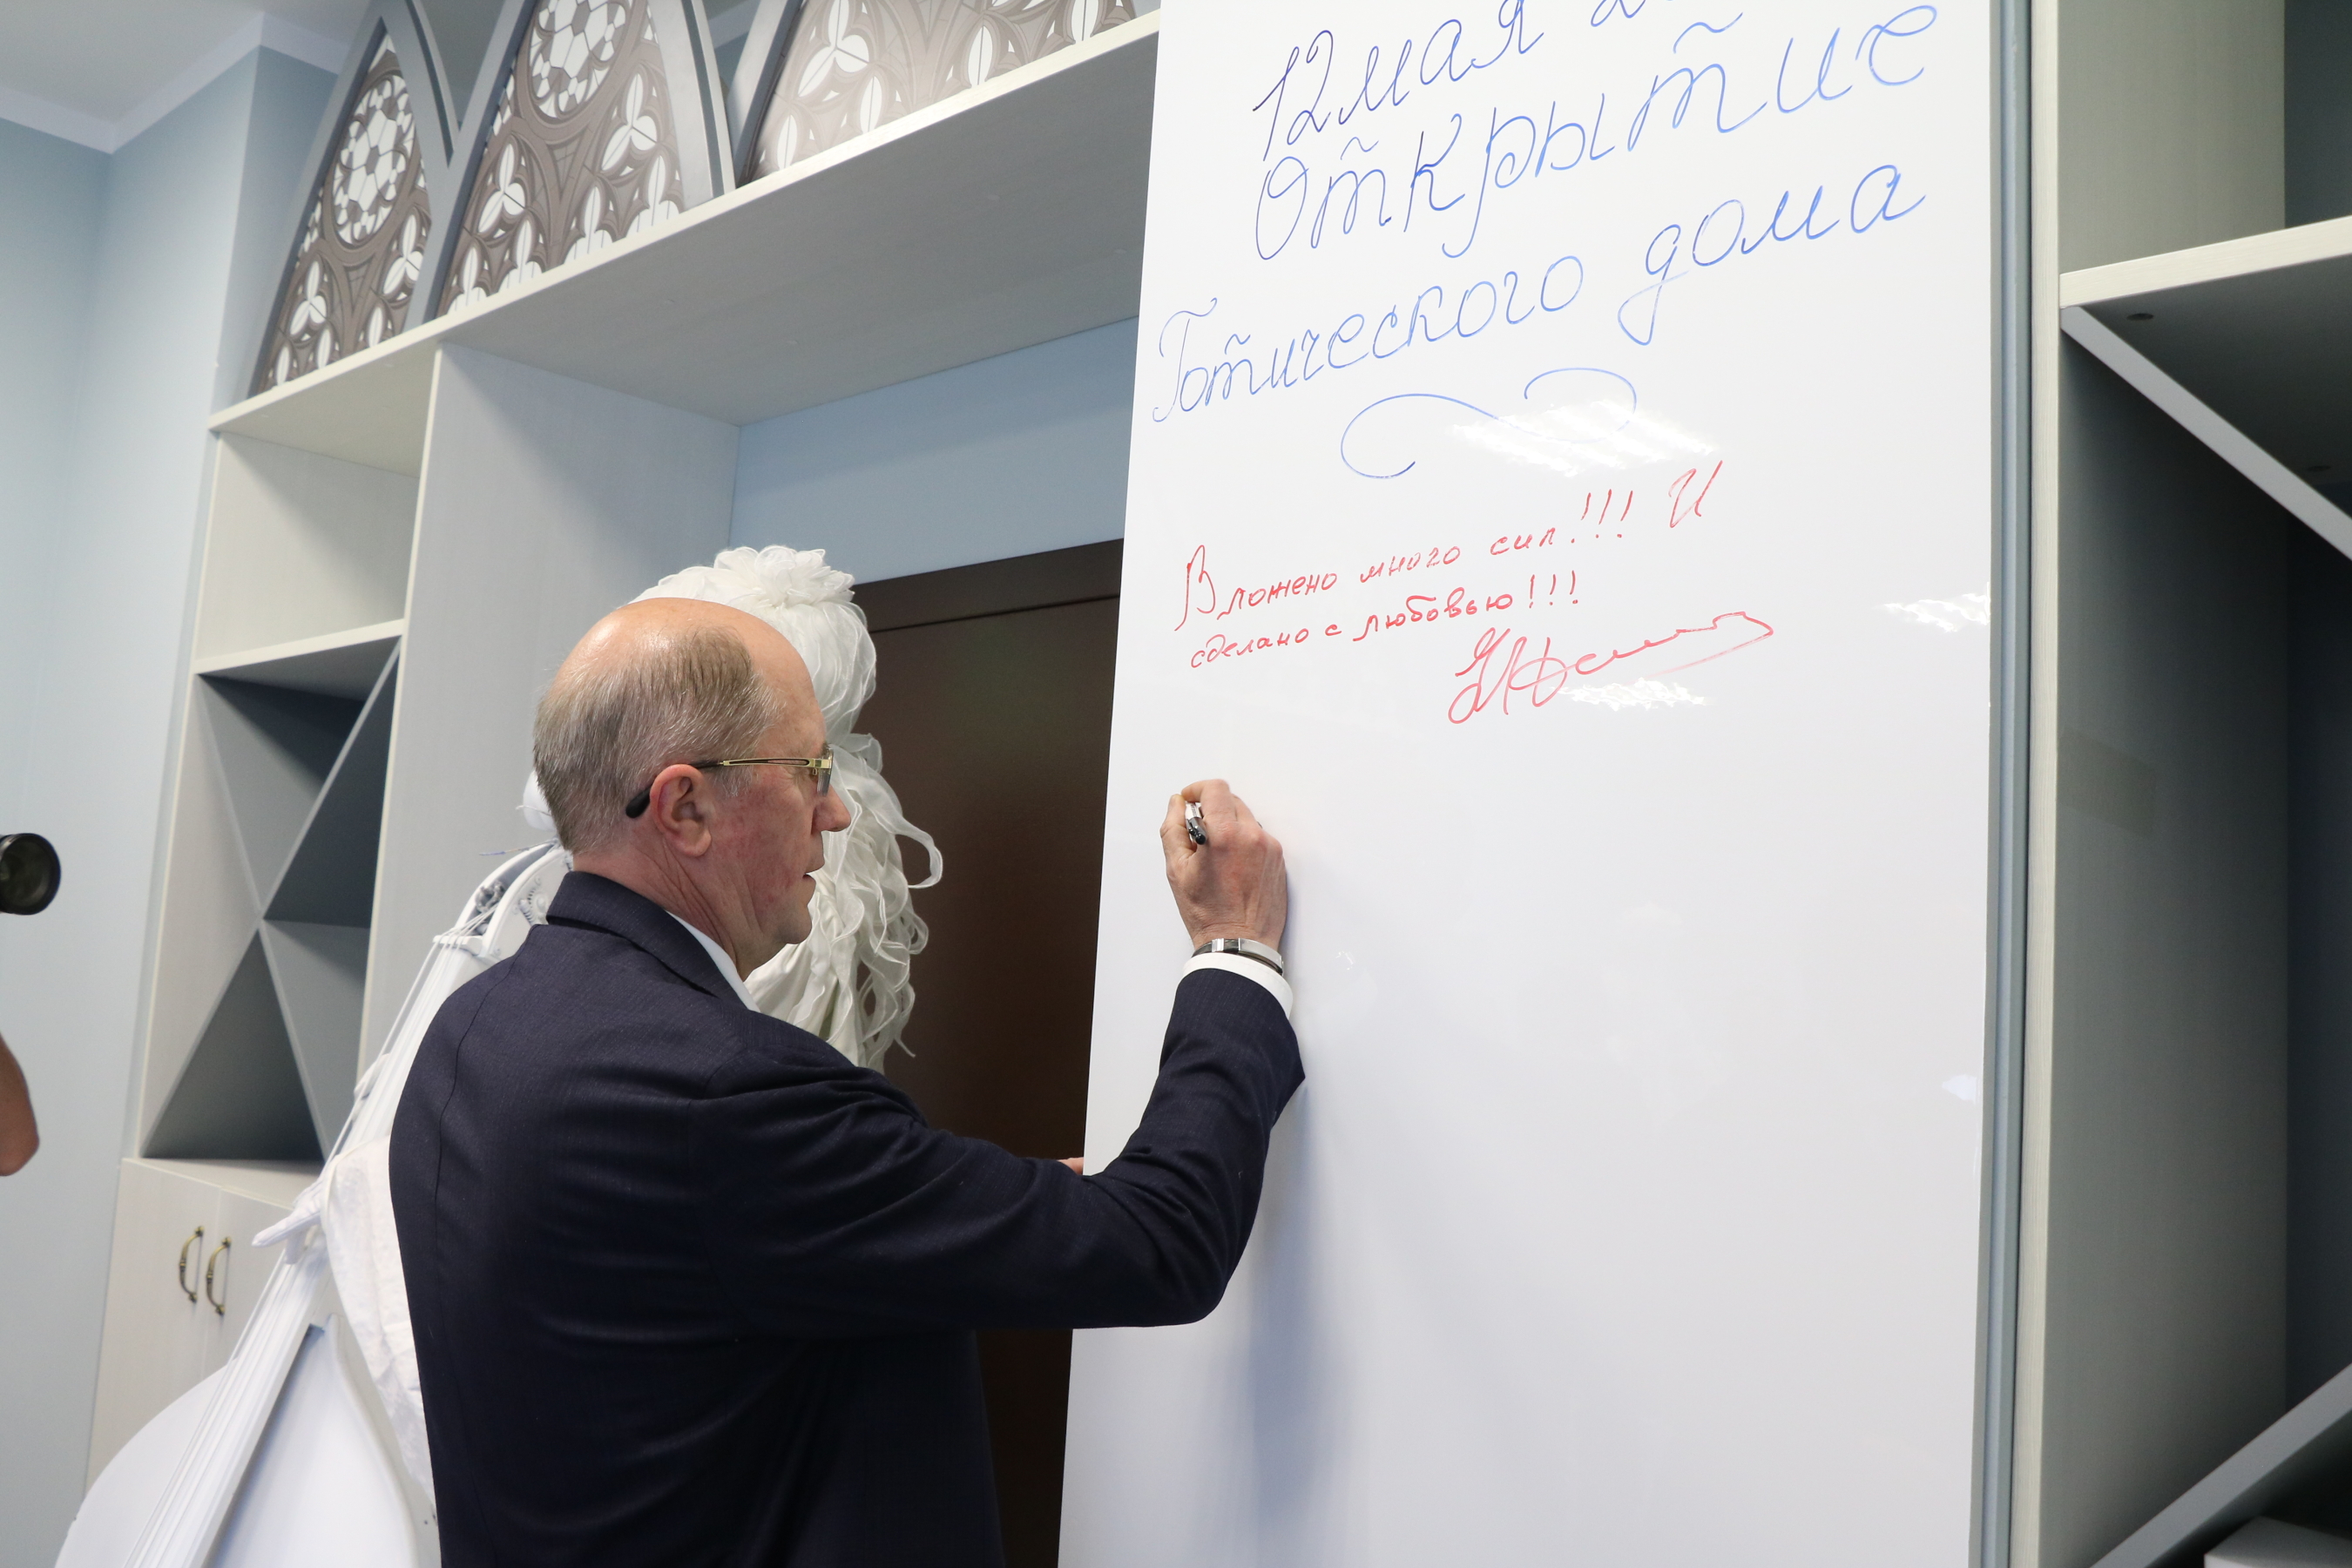 12 мая
Открытие
Готического дома
Вложено много сил!!! И
сделано с любовью!!!